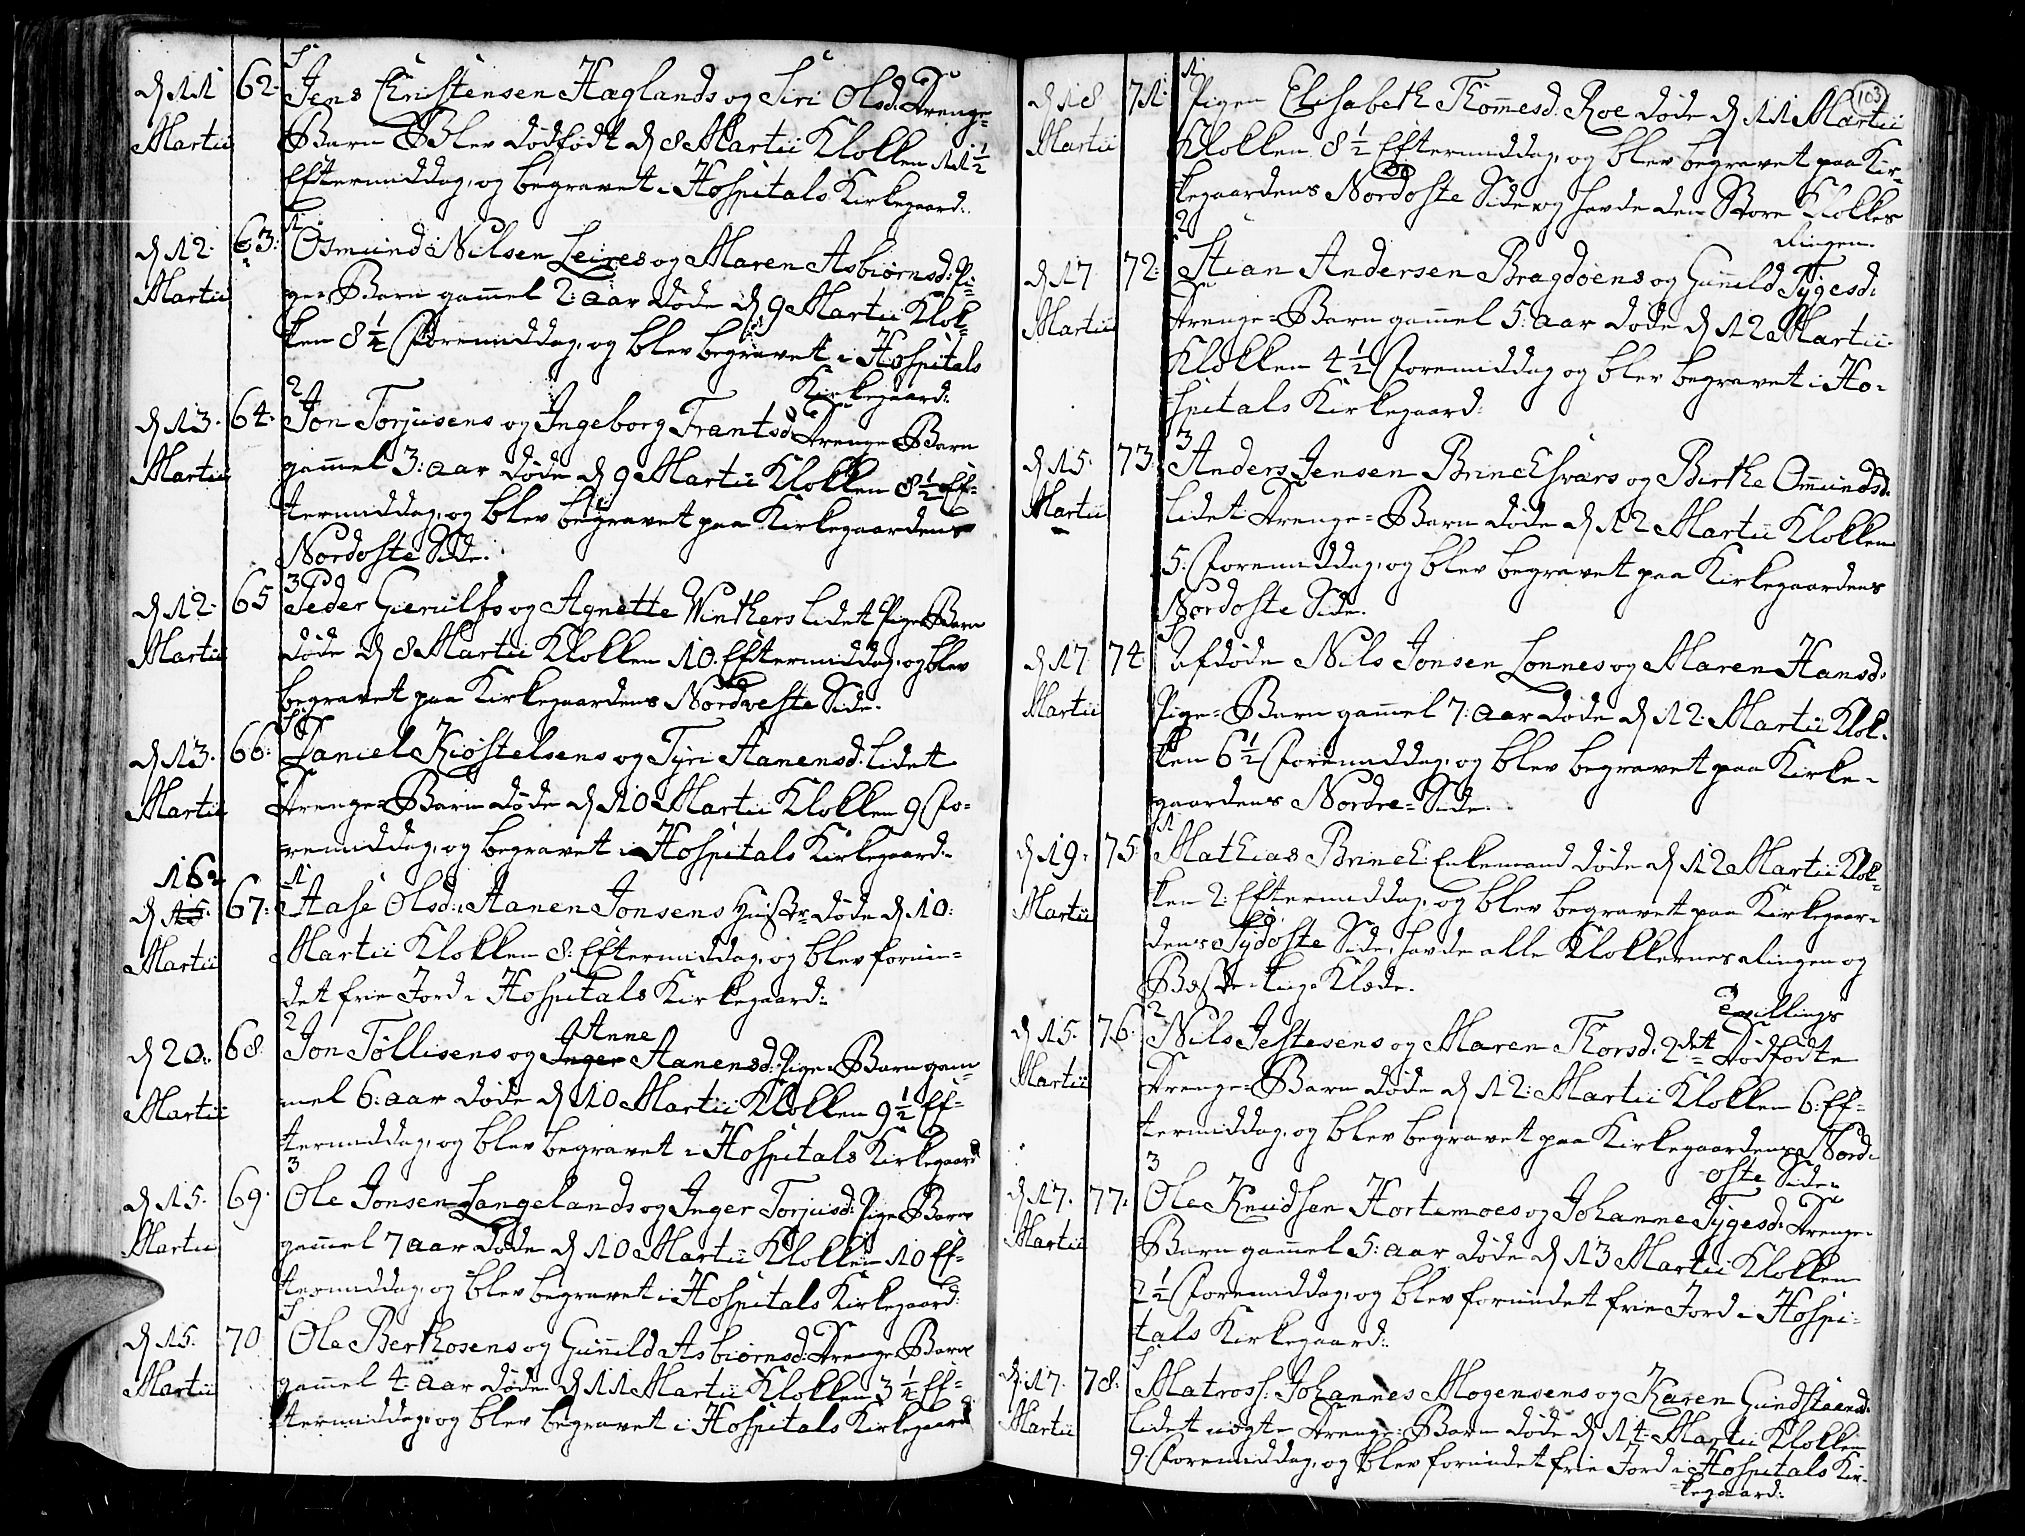 103
d 11 Martii 62. Jens Christensen Haglands og Siri Olsd: Drenge=
Barn Blev dødfødt d 8 Martii Klokken 11 1/2
Eftermiddag, og begravet i Hospitals Kirkegaard.
1
d 12. Martii 63: Osmund Nilsen Leires og Maren Asbiørnsd: Pi=
ge=Barn gammel 2: aar døde d 9 Martii Klok=
ken 8 1/4 Formiddag, og blev begravet i Hospitals
Kirkegaard:
2
d 13. Martii 64. Jon Torjusens og Ingeborg Frantsd Drenge Barn
gammel 3: aar døde d 9 Martii Klokken 8 1/2 Ef=
termiddag, og blev begravet paa Kirkegaardens
Nordoste Side.
3
d 12. Martii 65 Peder Gierulfs og Agnette Winthers lidet Pige Barn
døde d 8 Martii Klokken 10. Eftermiddag, og blev
begravet paa Kirkegaardens Nordveste Side.
d 13. Martii 66. Daniel Kiøstelsens og Tyri Aanensd. lidet
Drenge=Barn døde d 10 Martii Klokken 9 Fo=
remiddag, og begravet i Hospitals Kirkegaard.
1
16.
d 15. Martii 67. Aase Olsd: Aanen Jonsens Hustr: døde d 10:
Martii Klokken 8: Eftermiddag, og blev forun=
det frie Jord i Hospitals Kirkegaard:
2
Anne
d 20. Martii 68 Jon Tøllisens og Inger Aanensd: Pige=Barn gam=
mel 6: aar døde d 10 Martii Klokken 9 1/2 Ef=
termiddag, og blev begravet i Hospitals Kirkegaard
3
d 15. Martii 69. Ole Jonsen Langelands og Inger Torjusd: Pige Barn
gammel 7 aar døde d 10 Martii Klokken 10 Ef=
termiddag, og blev begravet i Hospitals Kirkegaard:
d 15. Martii 70 Ole Berthosens og Gunnild Asbiørnsd: Drenge Barn
gammel 4: aar døde d 11 Martii Klokken 3 1/4 Ef=
termiddag, og blev begravet i Hospitals Kirkegaard
1
d 18 Martii 71. Pigen Elisabeth Thommesd: Roe døde d 11 Martii
Klokken 8 1/2 Eftermiddag, og blev begravet paa Kir=
kegaardens Nordoste Side og havde den Store Klokkes
Ringen.
2
d 17 Martii 72: Stian Andersen Bragdøens og Gunnild Tygesd:
Drenge=Barn gammel 5: aar døde d 12 Martii
Klokken 4 1/2 Foremiddag og blev begravet i Ho=
spitals Kirkegaard:
3
d 15. Martii 73. Anders Jensen Brinckhvars og Birthe Omundsd.
lidet Drenge=Barn døde d 12 Martii Klokken
5. Foremiddag, og blev begravet paa Kirkegaardens
Nordoste Side.
d 17 Martii 74. Afdøde Nils Jonsen Lonnes og Maren Hansd:
Pige=Barn gammel 7: aar døde d 12. Martii Klok=
ken 6 1/2 Foremiddag, og blev begravet paa Kirke=
gaardens Nordre=Side.
1
d 19. Martii 75. Mathias Brinch Enkemand døde d 12 Martii Klok=
ken 2: Eftermiddag, og blev begravet paa Kirkegaar=
dens Sydoste Side, havde alle Klokkernes Ringen og
Beste Liig=Klæde.
2
Tvillings
d 15. Martii 76. Nils Jestesens og Maren Thorsd: 2det Dødfødte
Drenge=Barn døde d 12: Martii Klokken 6: Ef=
termiddag, og blev begravet paa Kirkegaardens Nord=
oste Side.
3
d 17. Martii 77. Ole Knudsen Hortemoes og Johanne Tygesd: Drenge=
Barn gammel 5: aar døde d 13 Martii Klokken
2 1/2 Foremiddag, og blev forundet frie Jord i Hospi=
tals Kirkegaard:
d 17. Martii 78. Matros: Johannes Mogensens og Karen Gundstensd.
lidet uægte Drenge=Barn døde d 14. Martii Klokken
9 Foremiddag, og blev forundet frie Jord i Hospitals Kir=
kegaard: